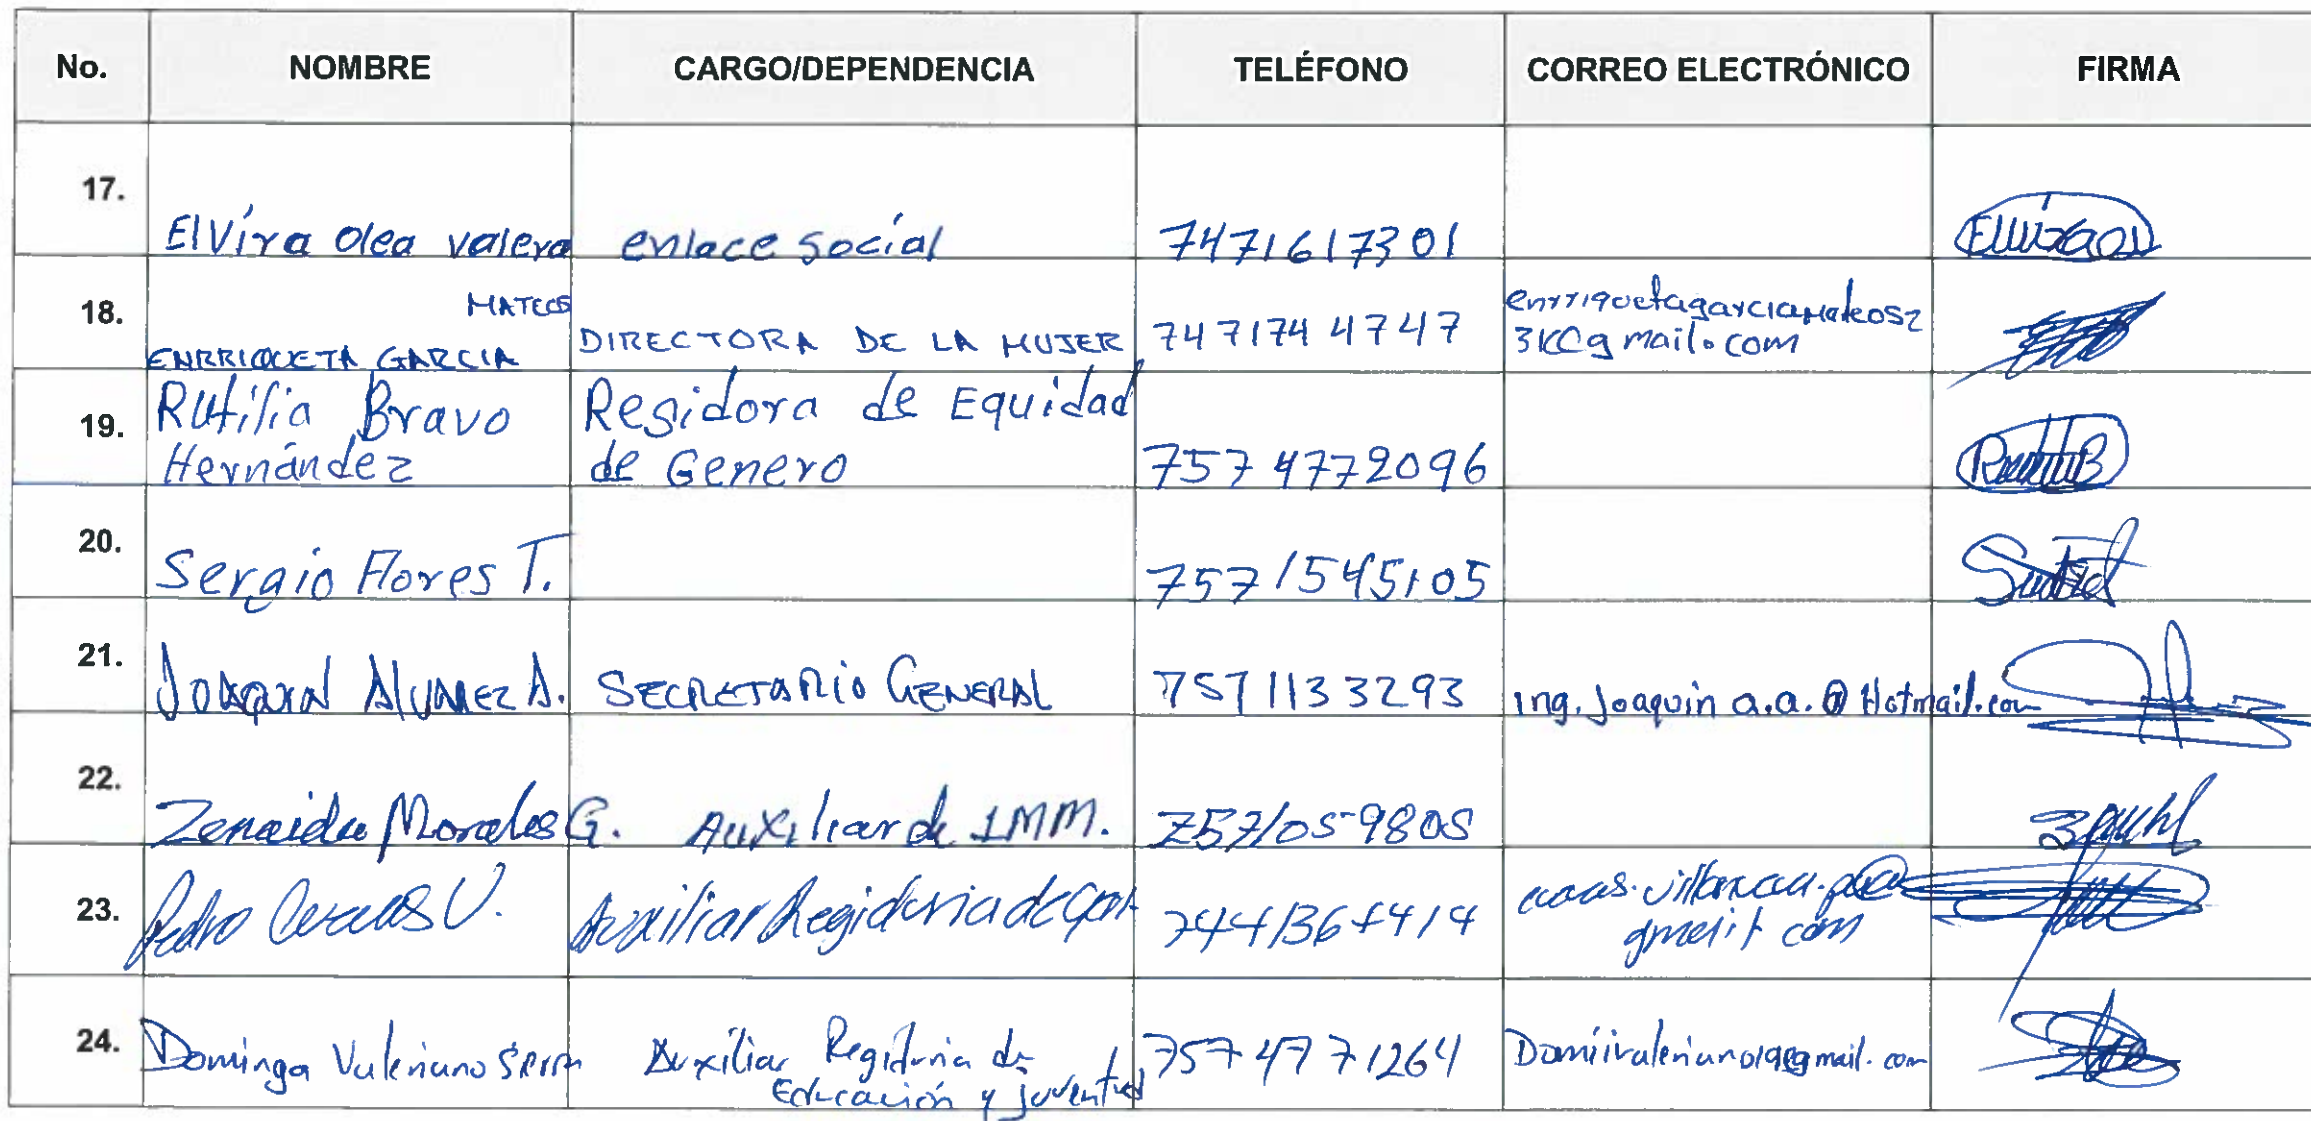 No. NOMBRE CARGO/DEPENDENCIA TELÉFONO CORREO ELECTRÓNICO FIRMA
17. Elvíra Olea valera enlace social 7471617301
18. ENRRIQUETA GARCIA MATEOS DIRECTORA DE LA MUJER 7471744747 enrriquetagarciamateos2
3K@gmail.com
19. Rutilia Bravo Regidora de Equidad
Hernández de Genero 7574772096
20. Sergio Flores T. 7571545105
21. JOAQUIN ALVAREZ A. SECRETARIO GENERAL 7571133293 ing.joaquin a.a.@Hotmail.com
22. Zenaida Morales G. Auxiliar de IMM. 757105-9805
23. Pedro V. Auxiliar Regiduria de
24. Dominga Valeriano Auxiliar Regiduria de 7574771264
Educación y Juventud